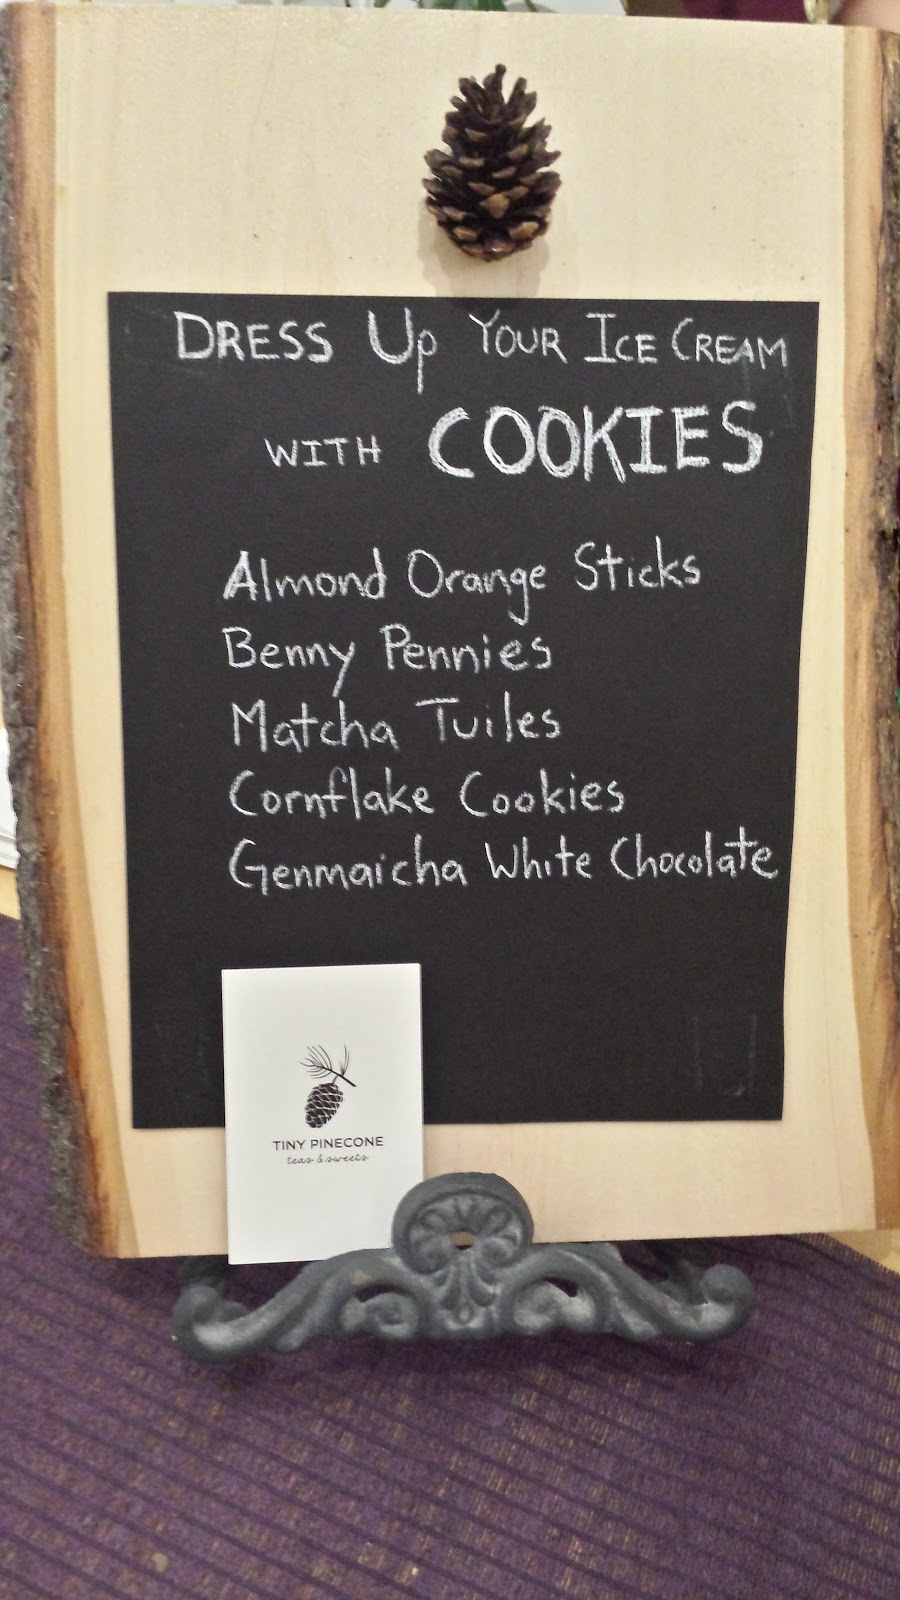 DRESS UP YOUR ICE CREAM
WITH COOKIES
Almond Orange Sticks
Benny Pennies
Matcha Tuiles
Cornflake Cookies
Genmaicha White Chocolate
TINY PINECONE
teas & sweets